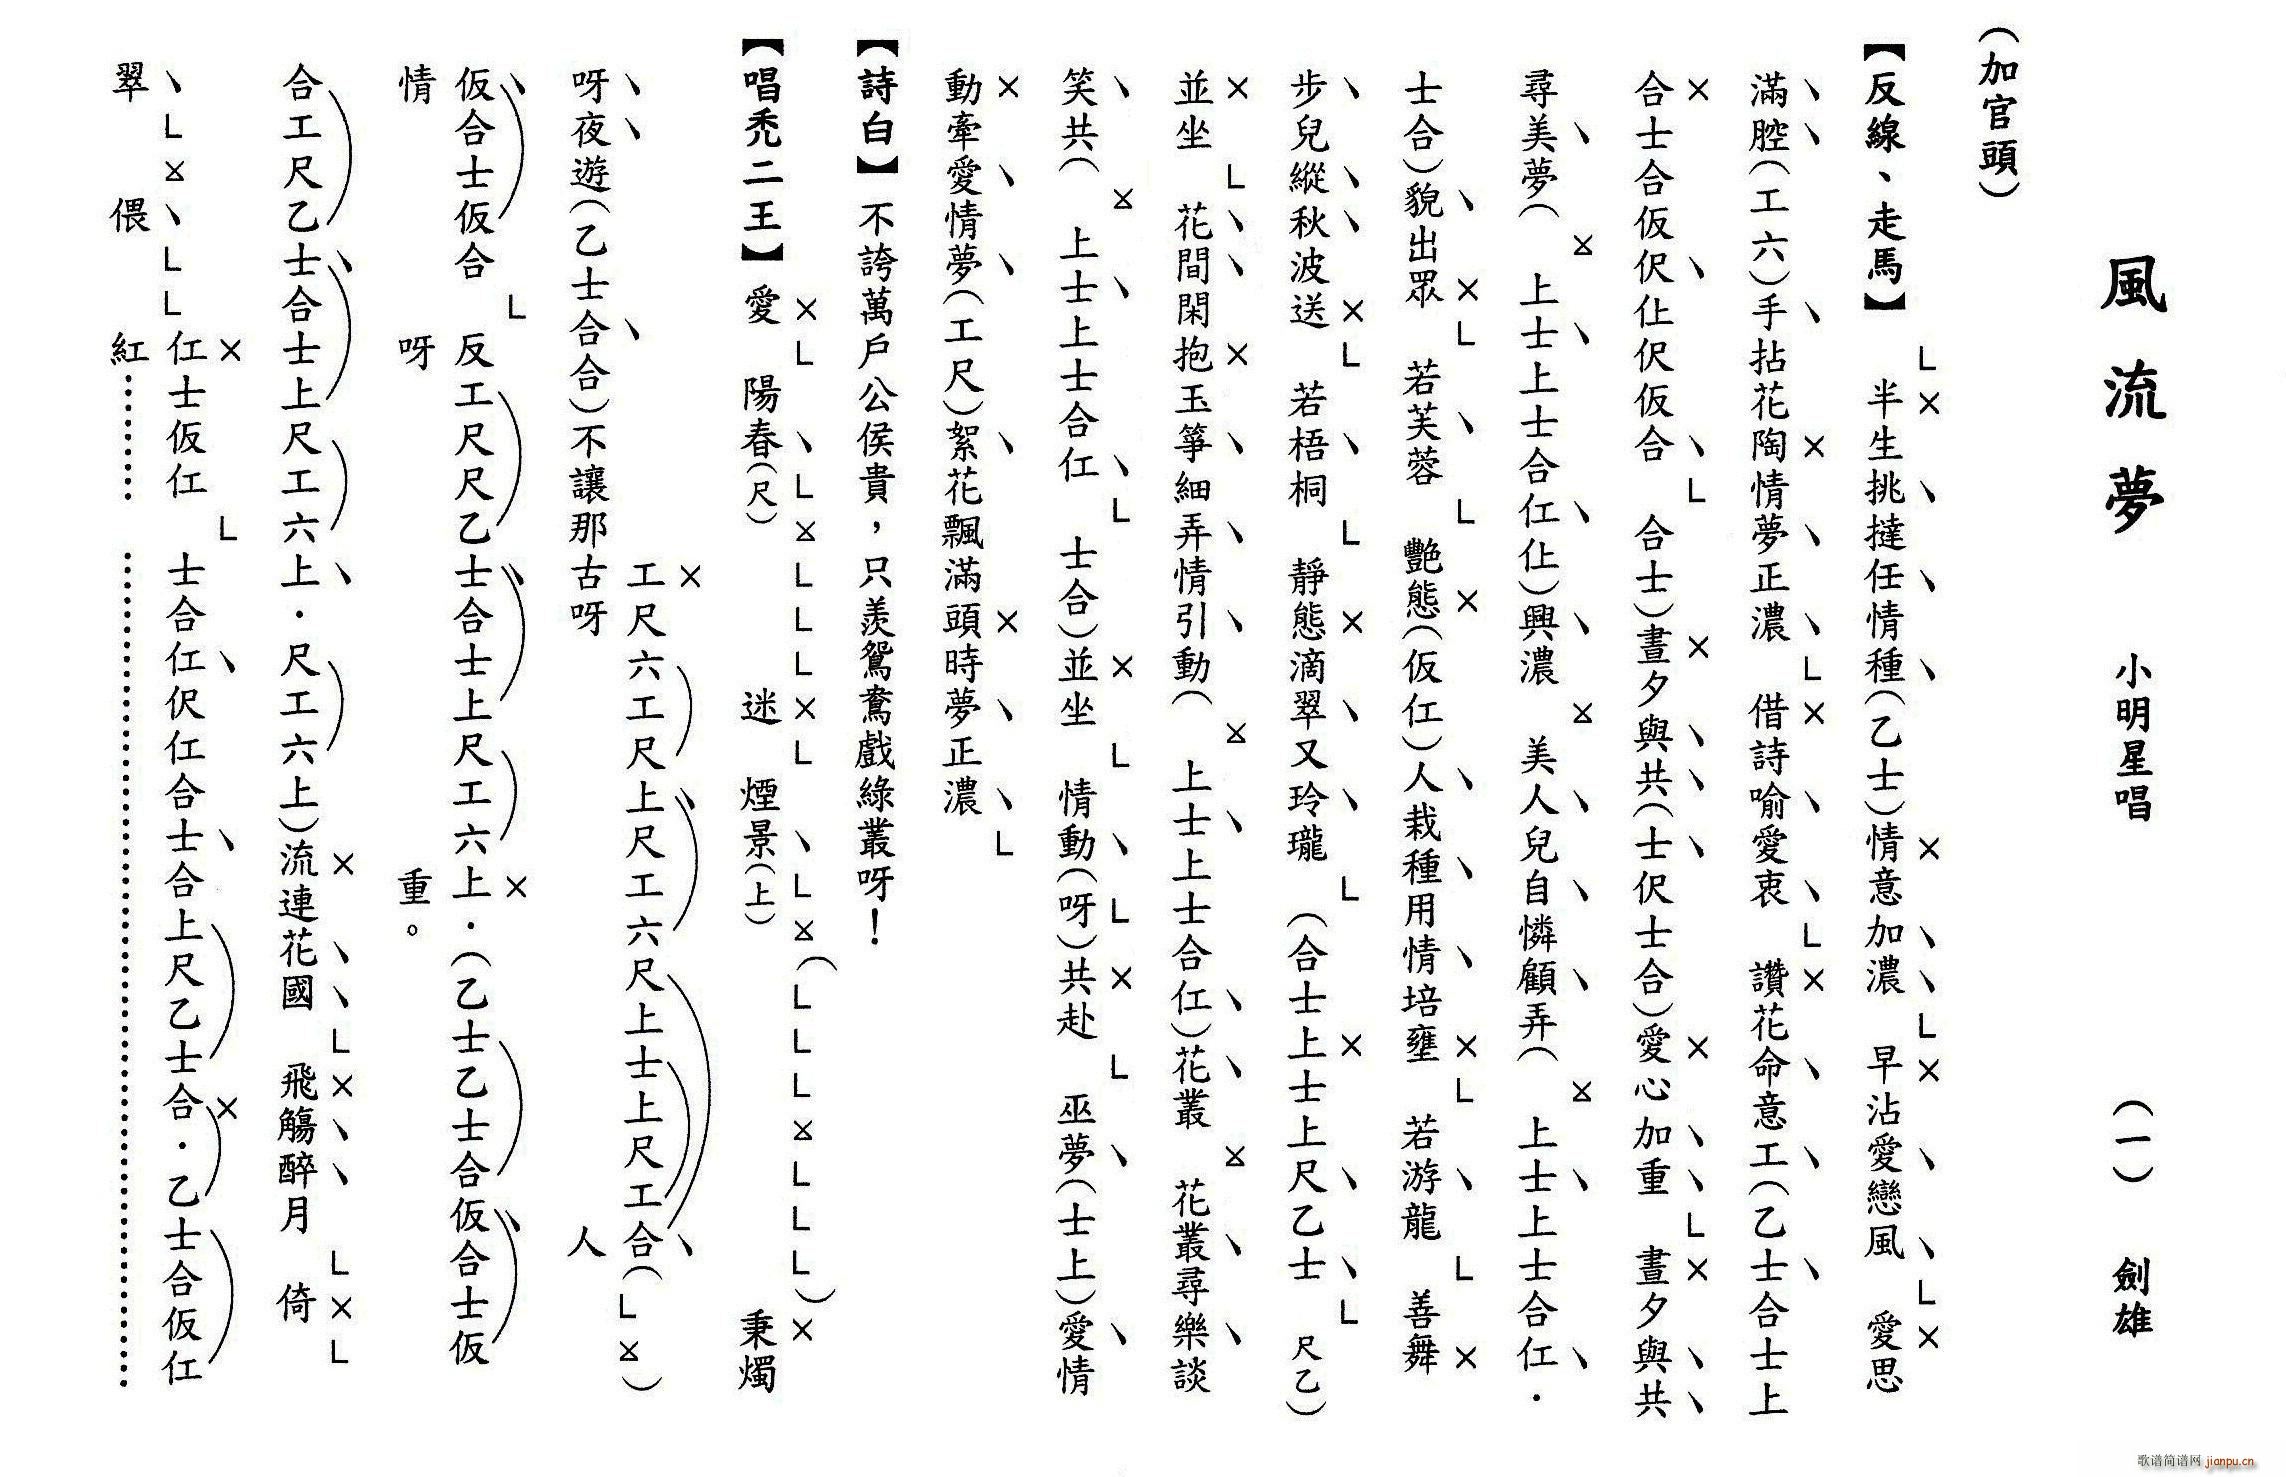 風流夢　小明星唱　（一）　劍雄
（加官頭）
【反線、走馬】半生挑撻任情種（乙士）情意加濃　早沾愛戀風　愛思
滿腔（工六）手拈花陶情夢正濃　借詩喻愛衷　讚花命意工（乙士合士上
合士合仮伬仩伬仮合　合士）晝夕與共（士伬士合）愛心加重　晝夕與共
尋美夢（上士上士合仜仩）興濃　美人兒自憐顧弄（上士上士合仜．
士合）貌出眾　若芙蓉　艷態（仮仜）人栽種用情培壅　若游龍　善舞
步兒縱秋波送　若梧桐　靜態滴翠又玲瓏　（合士上士上尺乙士　尺乙）
並坐　花間閑抱玉箏細弄情引動（上士上士合仜）花叢　花叢尋樂談
笑共（上士上士合仜　士合）並坐　情動（呀）共赴　巫夢（士上）愛情
動牽愛情夢（工尺）絮花飄滿頭時夢正濃
【詩白】不誇萬戶公侯貴，只羨鴛鴦戲綠叢呀！
【唱禿二王】愛　陽春（尺）　迷　煙景（上）　秉燭
工尺六工尺上尺工六尺上士上尺工合（L）
呀夜遊（乙士合合）不讓那古呀　人
仮合士仮合　反工尺尺乙士合士上尺工六上．（乙士乙士合仮合士仮
情　呀　重。
合工尺乙士合士上尺工六上．尺工六上）流連花國　飛觴醉月　倚
仜士仮仜　士合仜伬仜合士合上尺乙士合．乙士合仮仜
翠　偎　紅………
歌谱简谱网 jianpu.cn